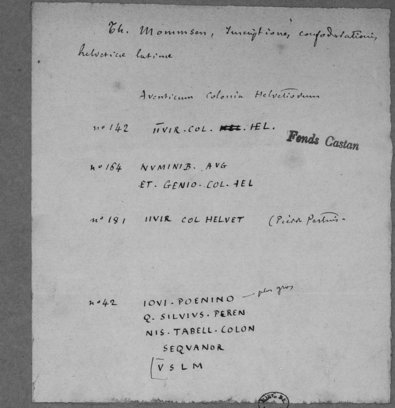 Th. Mommsen, Inscriptiones confoederationis
helveticæ latinæ
Aventicum Colonia Helvetiorum
n° 142 IIVIR. COL. HEL.
Fonds Castan
n° 164 NVMINIB. AVG
ET. GENIO. COL. HEL
n° 181 IIVIR COL HELVET (Pierre Pertuis.
n° 42 IOVI. POENINO — plus gros
Q. SILVIVS. PEREN
NIS. TABELL. COLON
SEQVANOR
V S L M